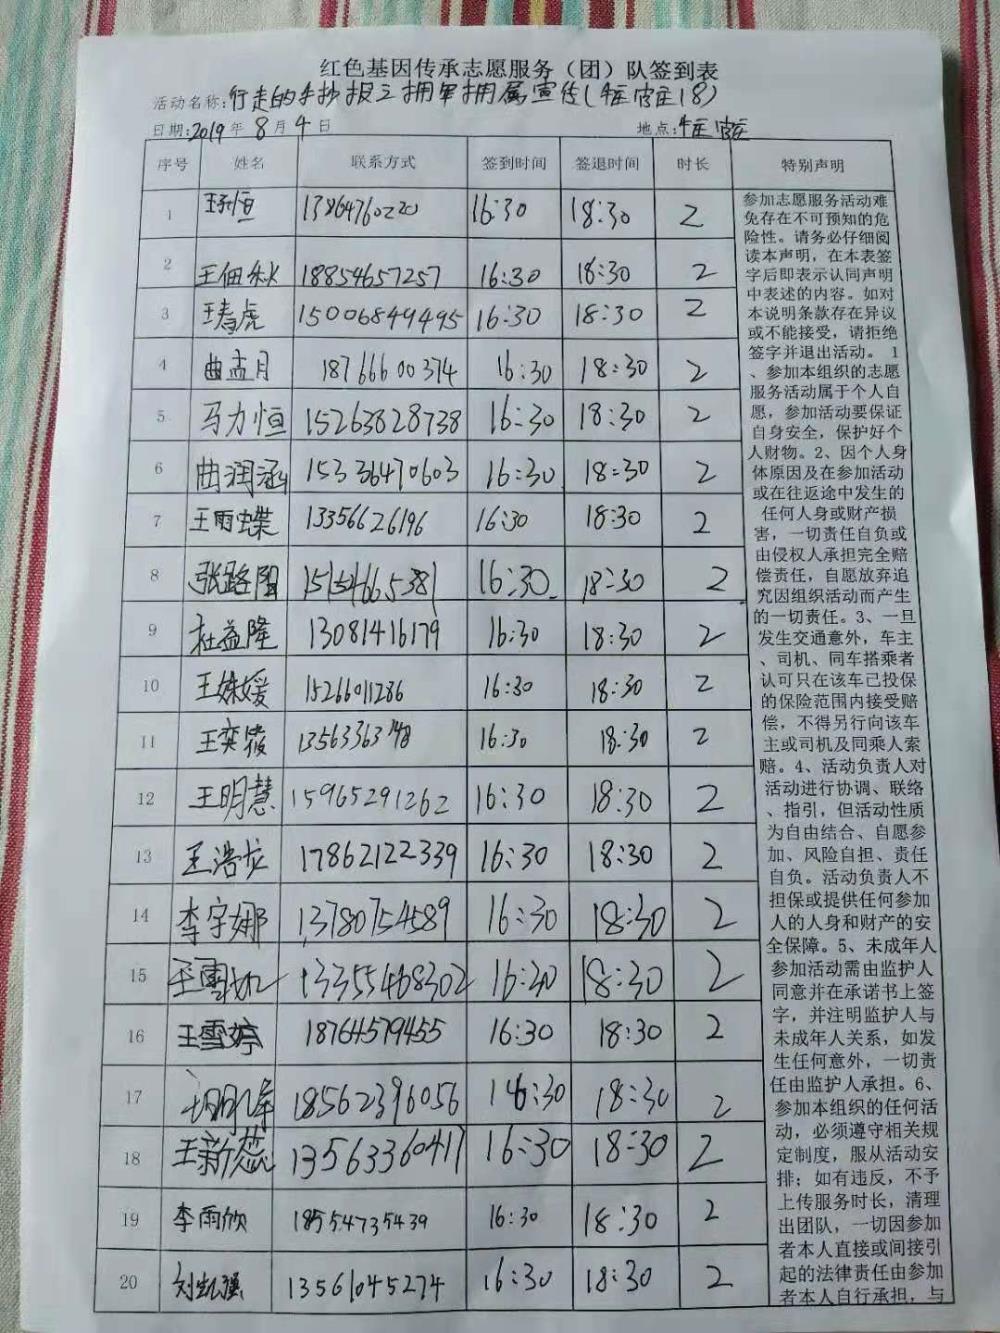 红色基因传承志愿服务（团）队签到表
活动名称:行走的手抄报之拥军拥属宣传(18)
日期:2019年8月4日 地点:
序号 姓名 联系方式 签到时间 签退时间 时长 特别声明
1 13864760220 16:30 18:30 2
2 王佃秋 18854657257 16:30 18:30 2
3 15006849495 16:30 18:30 2
4 曲孟月 18766600374 16:30 18:30 2
5 马力恒 15263828738 16:30 18:30 2
6 曲润涵 15336470603 16:30 18:30 2
7 王雨蝶 13356626196 16:30 18:30 2
8 张路阳 16:30 18:30 2
9 杜益隆 13081416179 16:30 18:30 2
10 王姝媛 15266011286 16:30 18:30 2
11 王奕 16:30 18:30 2
12 王明慧 15965291262 16:30 18:30 2
13 王浩龙 17862122339 16:30 18:30 2
14 李宇娜 13780754589 16:30 18:30 2
15 王雪如 13355468302 16:30 18:30 2
16 王雪婷 18764579455 16:30 18:30 2
17 18562396056 16:30 18:30 2
18 王新蕊 13563360417 16:30 18:30 2
19 李雨欣 18554735439 16:30 18:30 2
20 刘凯强 13561045274 16:30 18:30 2
参加志愿服务活动难
免存在不可预知的危
险性。请务必仔细阅
读本声明，在本表签
字后即表示认同声明
中表述的内容。如对
本说明条款存在异议
或不能接受，请拒绝
签字并退出活动。 1
、参加本组织的志愿
服务活动属于个人自
愿，参加活动要保证
自身安全，保护好个
人财物。2、因个人身
体原因及在参加活动
或在往返途中发生的
任何人身或财产损
害，一切责任自负或
由侵权人承担完全赔
偿责任，自愿放弃追
究因组织活动而产生
的一切责任。3、一旦
发生交通意外，车主
、司机、同车搭乘者
认可只在该车已投保
的保险范围内接受赔
偿，不得另行向该车
主或司机及同乘人索
赔。4、活动负责人对
活动进行协调、联络
、指引，但活动性质
为自由结合、自愿参
加、风险自担、责任
自负。活动负责人不
担保或提供任何参加
人的人身和财产的安
全保障。5、未成年人
参加活动需由监护人
同意并在承诺书上签
字，并注明监护人与
未成年人关系，如发
生任何意外，一切责
任由监护人承担。6、
参加本组织的任何活
动，必须遵守相关规
定制度，服从活动安
排；如有违反，不予
上传服务时长，清理
出团队，一切因参加
者本人直接或间接引
起的法律责任由参加
者本人自行承担，与